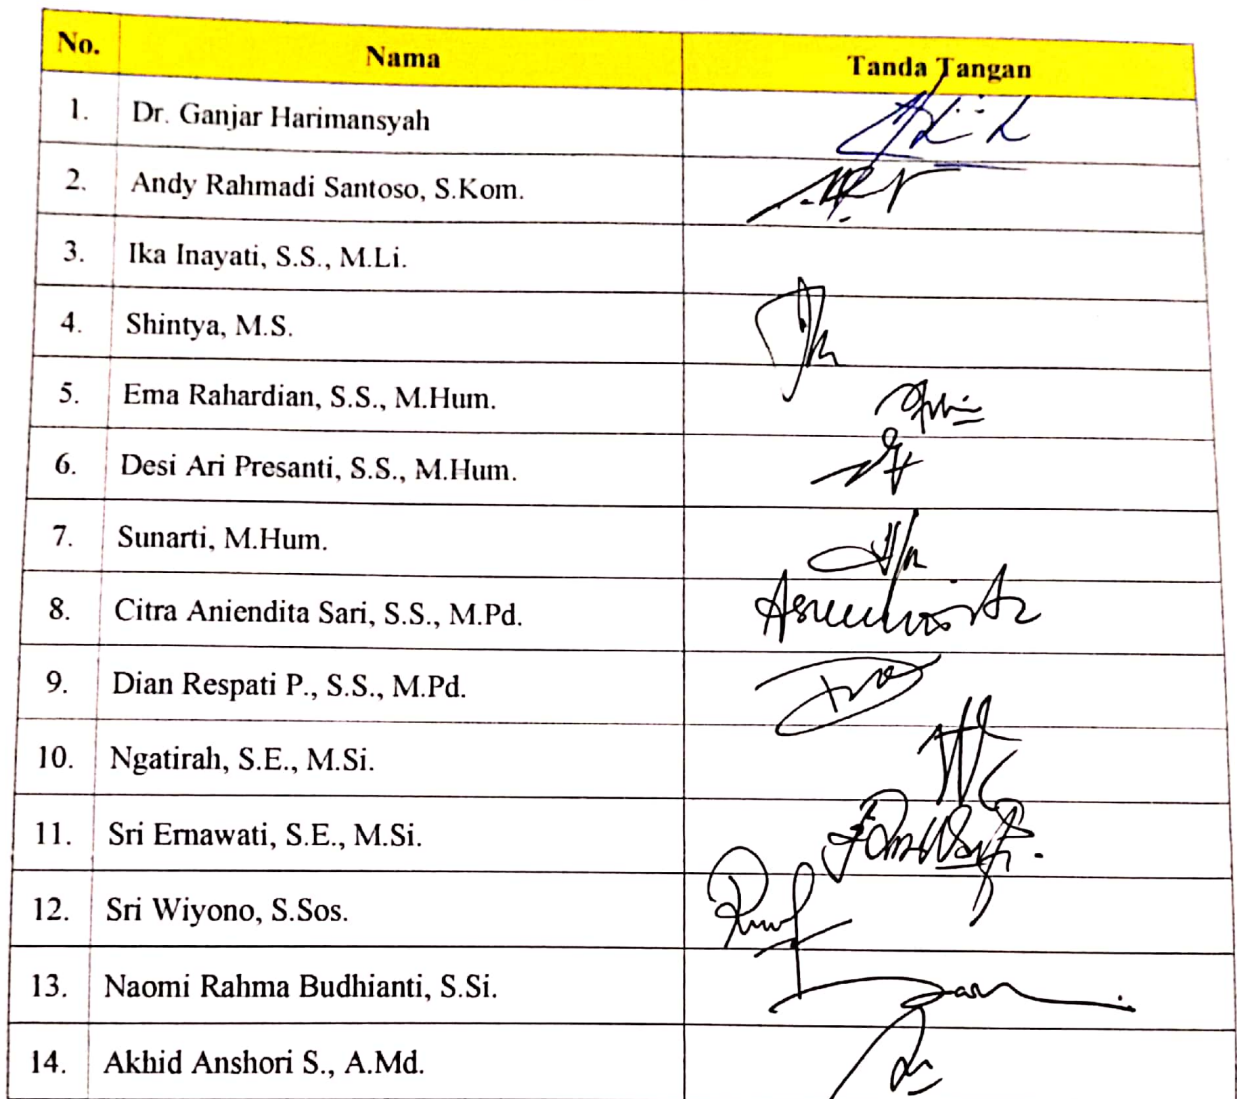 No. Nama Tanda Tangan
1. Dr. Ganjar Harimansyah
2. Andy Rahmadi Santoso, S.Kom.
3. Ika Inayati, S.S., M.Li.
4. Shintya, M.S.
5. Ema Rahardian, S.S., M.Hum.
6. Desi Ari Presanti, S.S., M.Hum.
7. Sunarti, M.Hum.
8. Citra Aniendita Sari, S.S., M.Pd.
9. Dian Respati P., S.S., M.Pd.
10. Ngatirah, S.E., M.Si.
11. Sri Ernawati, S.E., M.Si.
12. Sri Wiyono, S.Sos.
13. Naomi Rahma Budhianti, S.Si.
14. Akhid Anshori S., A.Md.